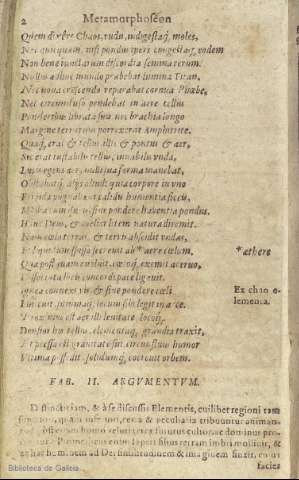 2 Metamorphoseon
Quem dixêre Chaos, rudis, indigestaq́; moles,
Nec quicquam, nisi pondus iners congestaq́; eodem
Non bene iunctarum discordia semina rerum.
Nullus adhuc mundo præbebat lumina Titan,
Nec noua crescendo reparabat cornua Phœbe,
Nec circunfuso pendebat in aere tellus
Ponderibus librata suis nec brachia longo
Margine terrarum porrexerat Amphitrite.
Quaq́; erat & tellus illic & pontus & aer,
Sic erat instabilis tellus, innabilis vnda,
Lucis egens aer, nulli sua forma manebat,
Obstabatq́; alijs aliud: quia corpore in vno
Frigida pugnabant calidis humentia siccis,
Mollia cum duris, sine pondere habentia pondus.
Hanc Deus, & melior litem natura diremit.
Nam cœlo terras, & terris abscidit vndas,
Et liquidum spisso secreuit ab * aere cœlum,
*æthere
Quæ postquam euoluit, cæcoq́; exemit aceruo,
Dissociata locis concordi pace ligauit.
Ignea conuexi vis, & sine pondere cœli
Ex chao e-
lementa.
Emicuit, summaq́; locum sibi legit in arce.
Proximus est aer illi leuitate locoq́;
Densior his tellus, elementaq́; grandia traxit,
Et pressa est grauitate sui circunfluus humor
Vltima possedit, solidumq́; coercuit orbem.
FAB. II. ARGVMENTVM.
Distinctum, & à se discussis Elementis, cuilibet regioni tam
facies
Biblioteca de Galicia